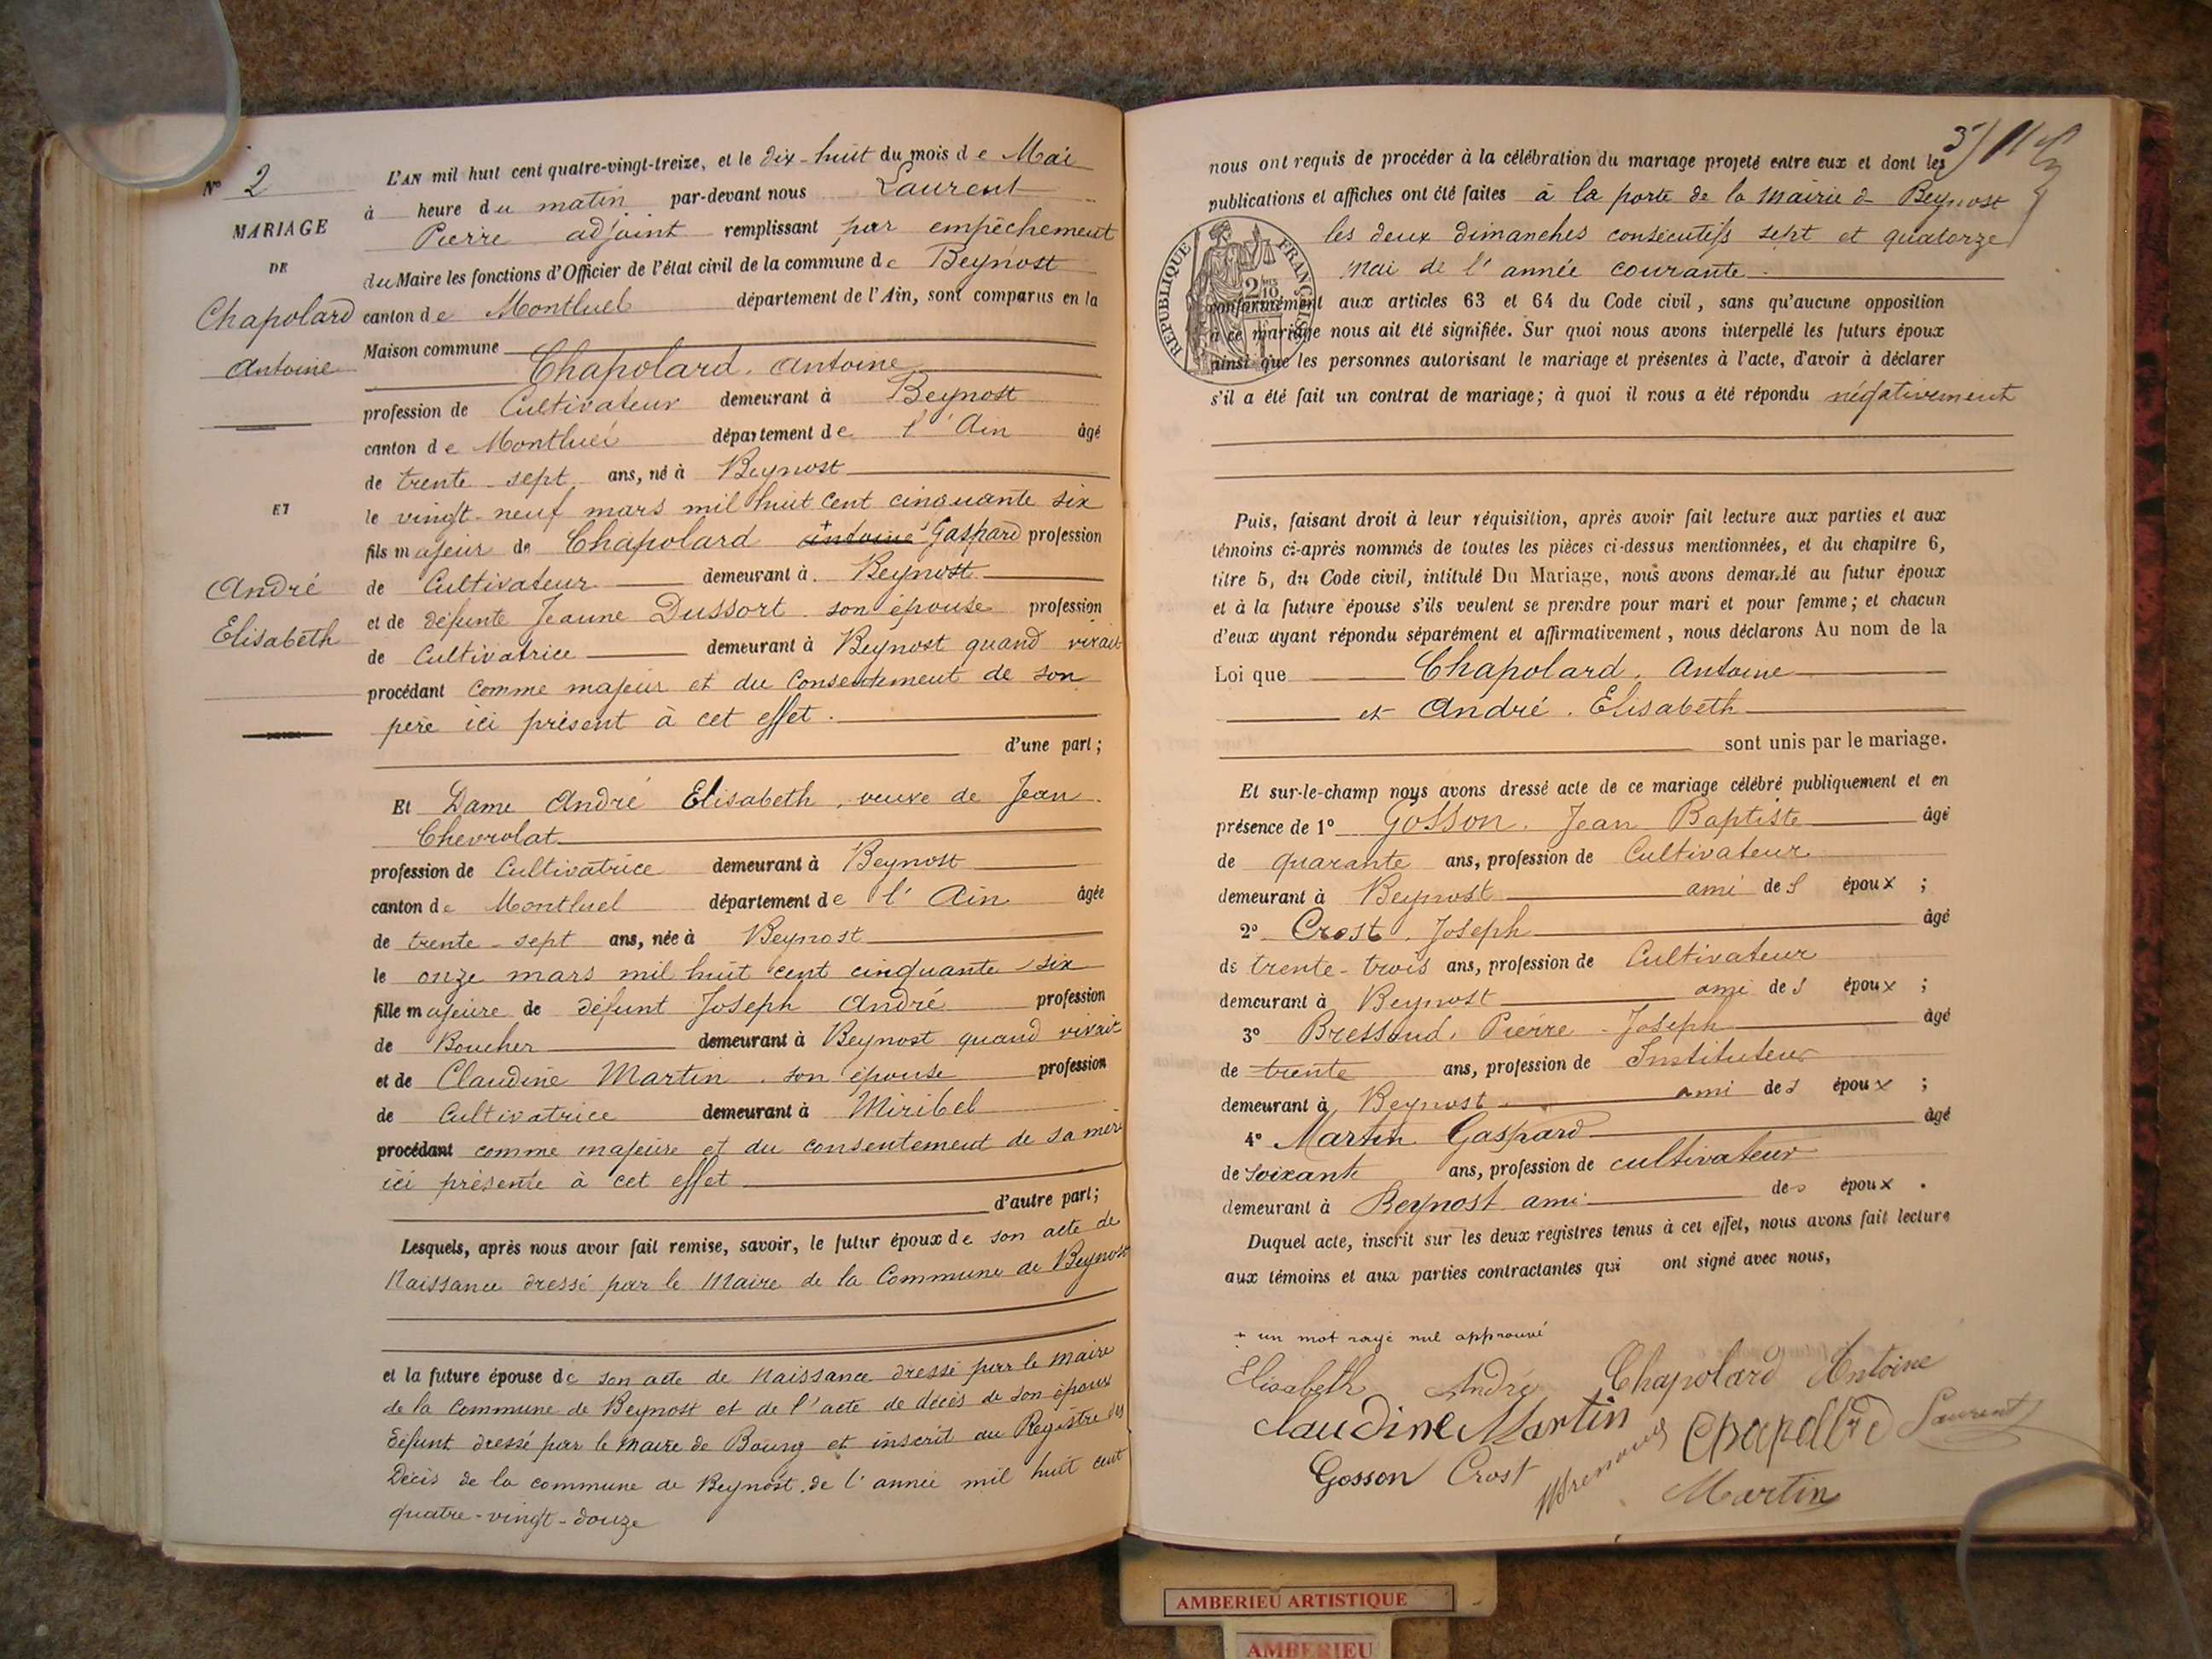 Nº 2
MARIAGE
DE
Chapolard
Antoine
ET
André
Elisabeth
L'AN mil huit cent quatre-vingt-treize, et le dix-huit du mois de Mai
à heure du matin par-devant nous Laurent
Pierre adjoint remplissant par empêchement
du Maire les fonctions d'Officier de l'état civil de la commune de Beynost
canton de Montluel département de l'Ain, sont comparus en la
Maison commune
Chapolard. Antoine
profession de Cultivateur demeurant à Beynost
canton de Montluel département de l'Ain âgé
de trente-sept ans, né à Beynost
le vingt-neuf mars mil huit cent cinquante six
fils majeur de Chapolard + Antoine Gaspard profession
de Cultivateur demeurant à Beynost
et de défunte Jeanne Dussort son épouse profession
de Cultivatrice demeurant à Beynost quand vivait
procédant comme majeur et du consentement de son
père ici présent à cet effet.
d'une part;
Et Dame André Elisabeth, veuve de Jean
Chevrolat
profession de Cultivatrice demeurant à Beynost
canton de Montluel département de l'Ain âgée
de trente-sept ans, née à Beynost
le onze mars mil huit cent cinquante six
fille majeure de défunt Joseph André profession
de Boucher demeurant à Beynost quand vivait
et de Claudine Martin son épouse profession
de Cultivatrice demeurant à Miribel
procédant comme majeure et du consentement de sa mère
ici présente à cet effet
d'autre part;
Lesquels, après nous avoir fait remise, savoir, le futur époux de son acte de
Naissance dressé par le Maire de la Commune de Beynost
et la future épouse de son acte de Naissance dressé par le Maire
de la Commune de Beynost et de l'acte de décès de son époux
défunt dressé par le Maire de Bourg et inscrit au Registre des
Décès de la commune de Beynost de l'année mil huit cent
quatre-vingt-douze
nous ont requis de procéder à la célébration du mariage projeté entre eux et dont les
publications et affiches ont été faites à la porte de la Mairie de Beynost
les deux dimanches consécutifs sept et quatorze
Mai de l'année courante.
RÉPUBLIQUE FRANÇAISE
2/10
conformément aux articles 63 et 64 du Code civil, sans qu'aucune opposition
à ce mariage nous ait été signifiée. Sur quoi nous avons interpellé les futurs époux
ainsi que les personnes autorisant le mariage et présentes à l'acte, d'avoir à déclarer
s'il a été fait un contrat de mariage; à quoi il nous a été répondu négativement
Puis, faisant droit à leur réquisition, après avoir fait lecture aux parties et aux
témoins ci-après nommés de toutes les pièces ci-dessus mentionnées, et du chapitre 6,
titre 5, du Code civil, intitulé Du Mariage, nous avons demandé au futur époux
et à la future épouse s'ils veulent se prendre pour mari et pour femme; et chacun
d'eux ayant répondu séparément et affirmativement, nous déclarons Au nom de la
Loi que Chapolard. Antoine
et André. Elisabeth
sont unis par le mariage.
Et sur-le-champ nous avons dressé acte de ce mariage célébré publiquement et en
présence de 1º Gosson. Jean Baptiste âgé
de quarante ans, profession de Cultivateur
demeurant à Beynost ami des époux ;
2º Crost. Joseph âgé
de trente-trois ans, profession de Cultivateur
demeurant à Beynost ami des époux ;
3º Bressoud. Pierre-Joseph âgé
de trente ans, profession de Instituteur
demeurant à Beynost ami des époux ;
4º Martin Gaspard âgé
de soixante ans, profession de cultivateur
demeurant à Beynost ami des époux .
Duquel acte, inscrit sur les deux registres tenus à cet effet, nous avons fait lecture
aux témoins et aux parties contractantes qui ont signé avec nous,
+ un mot rayé nul approuvé
Elisabeth André Chapolard Antoine
Claudine Martin Laurent
Gosson Crost
Martin
AMBERIEU ARTISTIQUE
AMBERIEU